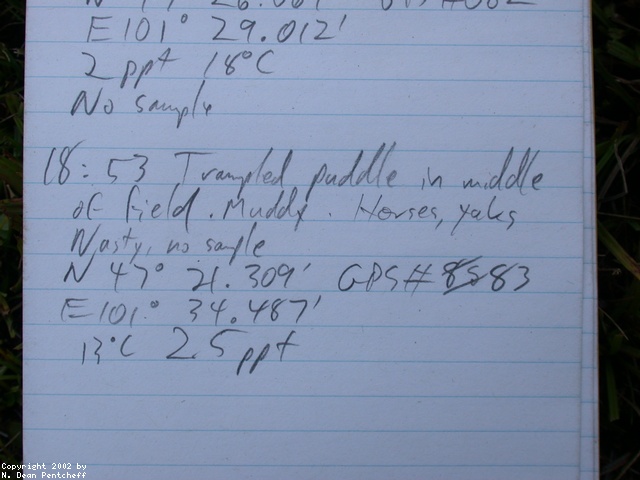 E 101° 29.012'
2 ppt 18°C
No sample
18:53 Trampled puddle in middle
of field. Muddy. Horses, yaks
Nasty, no sample
N 47° 21.309' GPS# 83
E 101° 34.487'
13°C 2.5 ppt
Copyright 2002 by
N. Dean Pentcheff